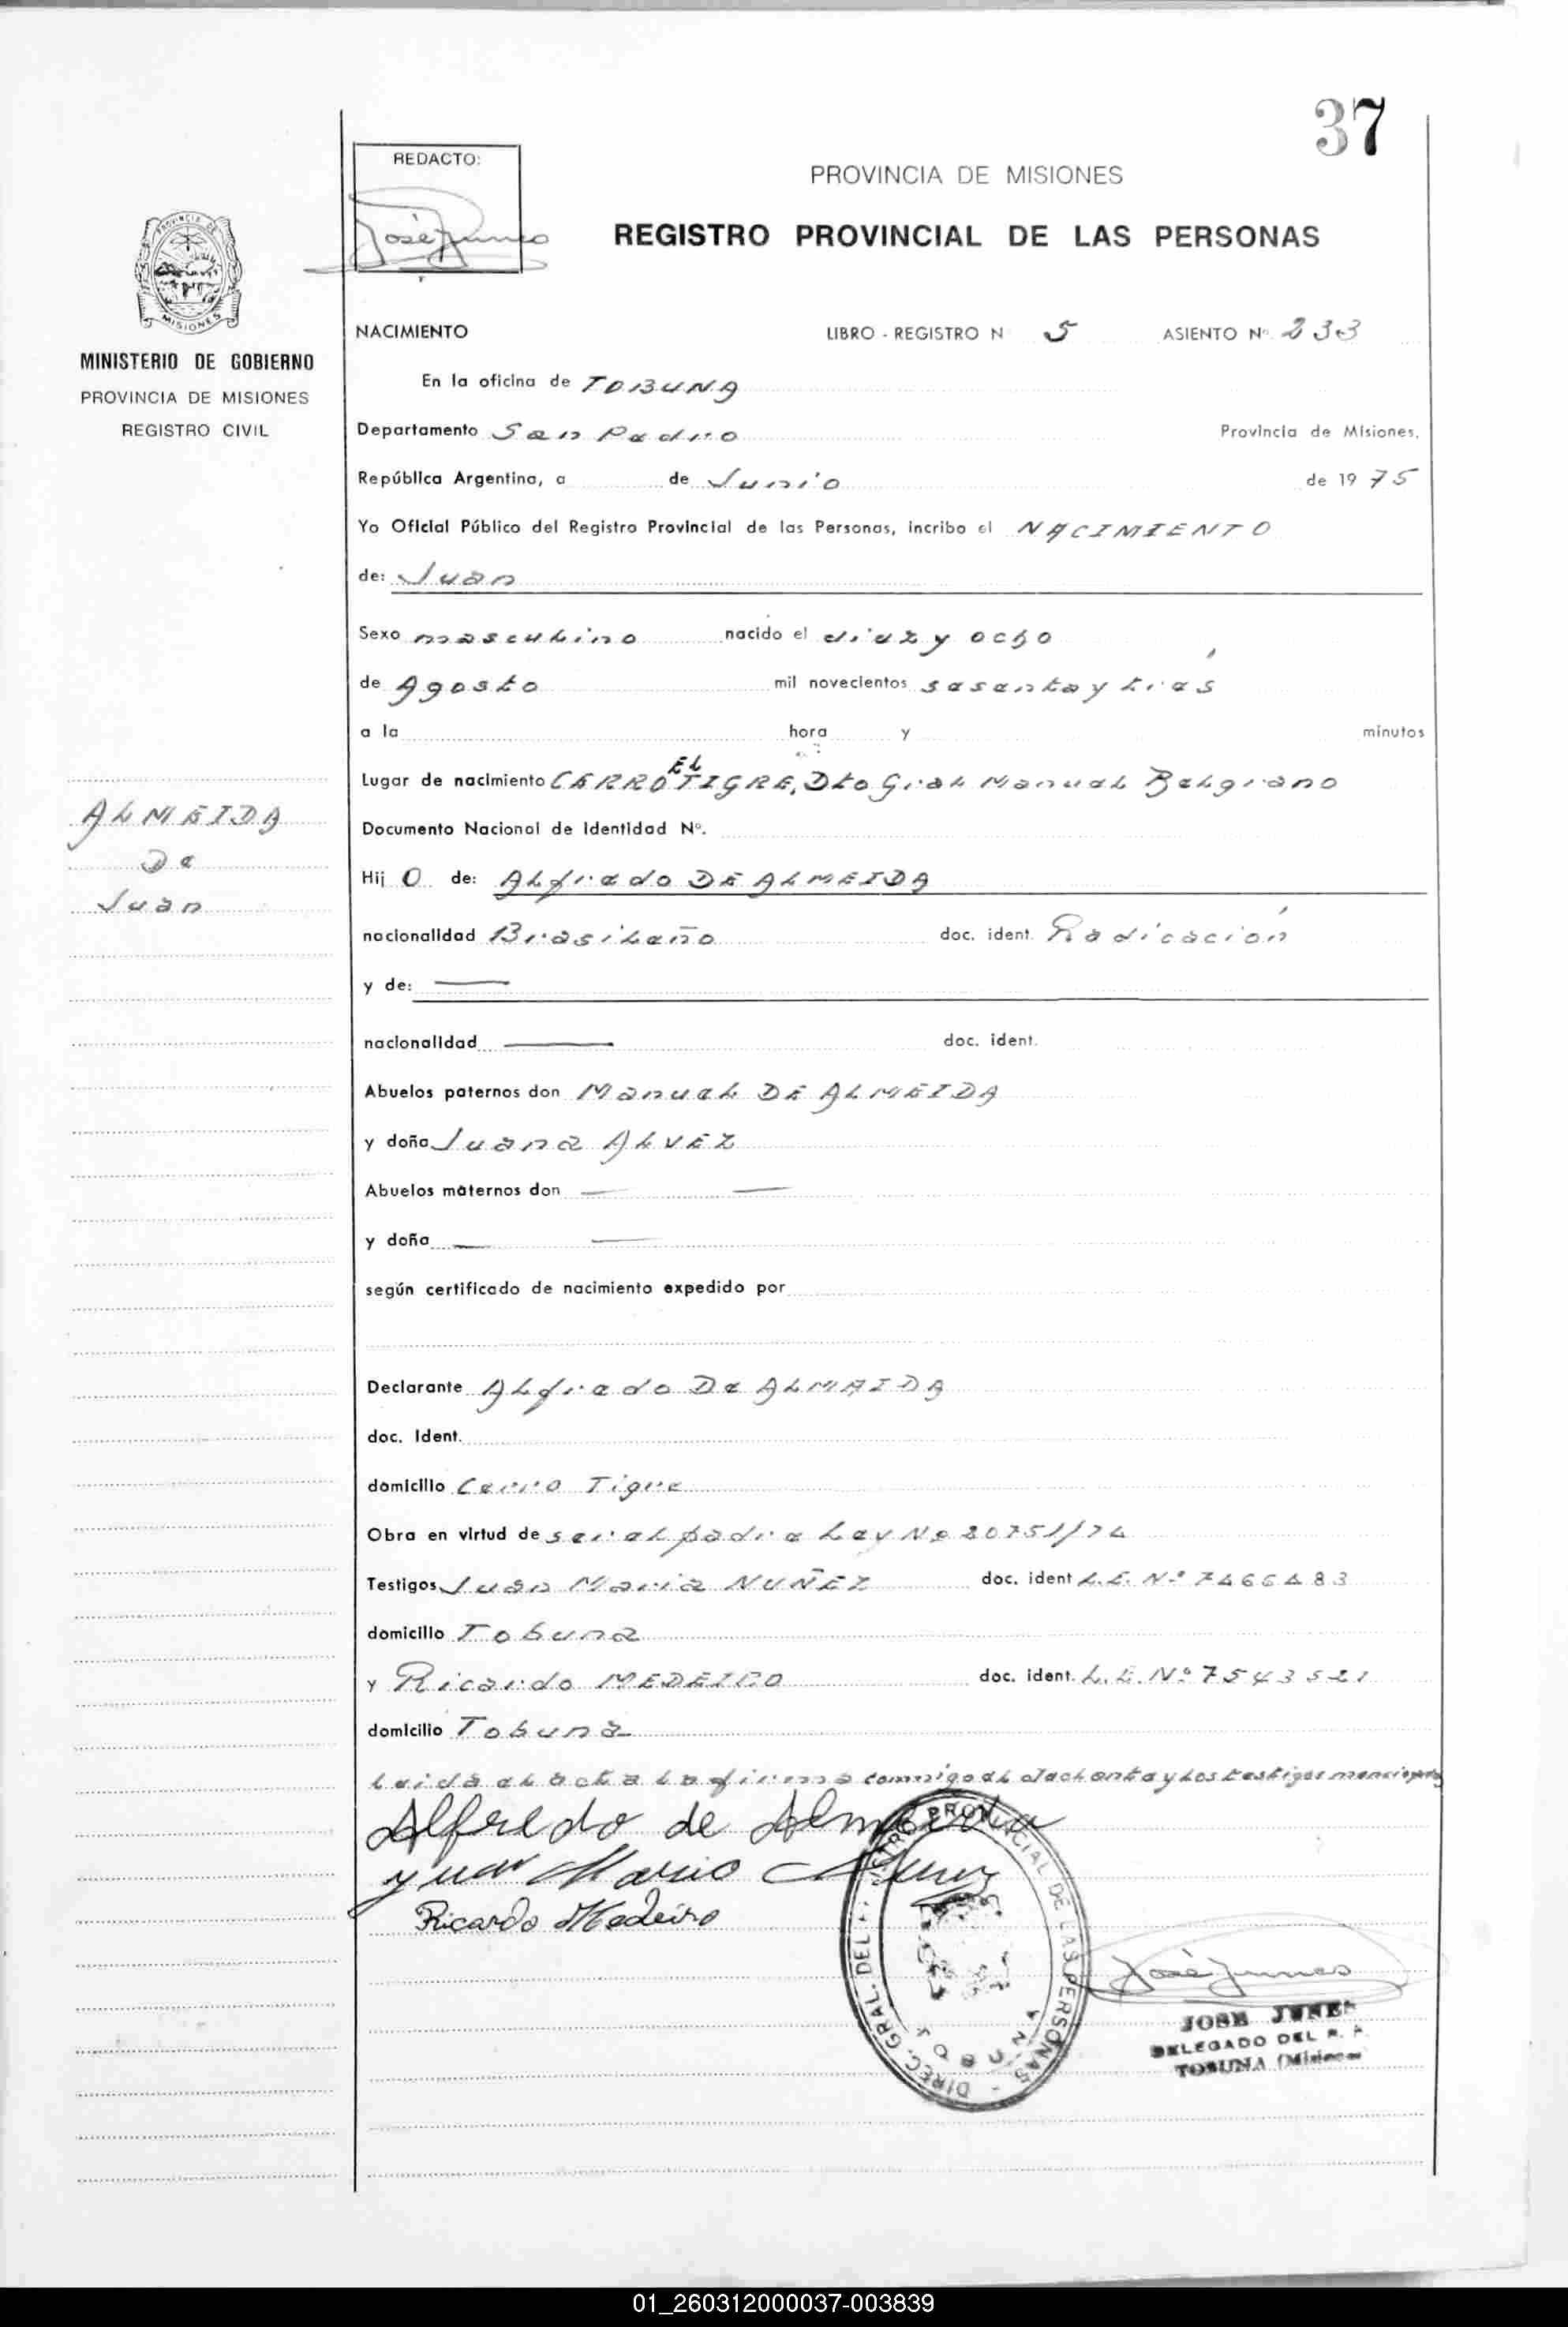 37
REDACTO:
PROVINCIA DE MISIONES
REGISTRO PROVINCIAL DE LAS PERSONAS
PROVINCIA DE
MISIONES
MINISTERIO DE GOBIERNO
PROVINCIA DE MISIONES
REGISTRO CIVIL
NACIMIENTO LIBRO - REGISTRO N 5 ASIENTO Nº 233
En la oficina de TOBUNA
Departamento San Pedro Provincia de Misiones,
República Argentina, a de Junio de 19 75
Yo Oficial Público del Registro Provincial de las Personas, incribo el NACIMIENTO
de: Juan
Sexo masculino nacido el diez y ocho
de Agosto mil novecientos sesenta y tres
a la hora y minutos
Lugar de nacimiento CERRO EL TIGRE, Dto Gral Manuel Belgrano
Documento Nacional de Identidad Nº.
Hij O de: Alfredo DE ALMEIDA
nacionalidad Brasileño doc. ident. Radicación
y de: —
nacionalidad — doc. ident.
Abuelos paternos don Manuel DE ALMEIDA
y doña Juana ALVEZ
Abuelos maternos don — —
y doña — —
según certificado de nacimiento expedido por
Declarante Alfredo De ALMEIDA
doc. Ident.
domicilio Cerro Tigre
Obra en virtud de ser el padre Ley Nº 20751/74
Testigos Juan Maria NUÑEZ doc. ident L.E. Nº 7466483
domicilio Tobuna
y Ricardo MEDEIRO doc. ident. L.E. Nº 7543521
domicilio Tobuna
Leida el acta la firma conmigo el
ALMEIDA
De
Juan
Alfredo de Almeida
Ricardo Medeiro
DIREC. GRAL. DEL REGISTRO PROVINCIAL DE LAS PERSONAS -
TOBUNA
DELEGADO DEL R. P.
TOBUNA (Misiones)
01_260312000037-003839